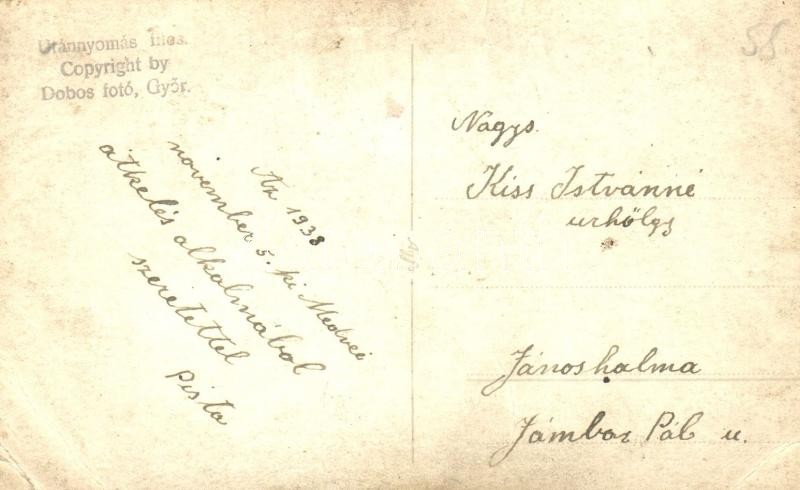 Utánnyomás tilos.
Copyright by
Dobos fotó, Győr.
55
Az 1938
november 5.-ki Medvei
átkelés alkalmából
szeretettel
Pista
Nagys.
Kiss Istvánné
urhölgy
Jánoshalma
Jámbor Pál u.